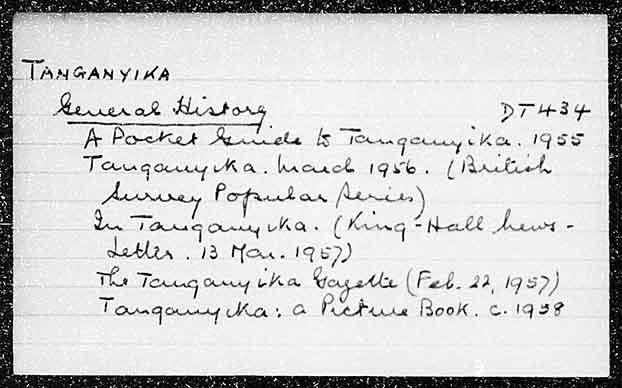 TANGANYIKA
General History DT434
A Pocket Guide to Tanganyika. 1955
Tanganyika. March 1956. (British
Survey Popular Series)
In Tanganyika. (King-Hall News-
Letter. 13 Mar. 1957)
The Tanganyika Gazette (Feb. 22, 1957)
Tanganyika: a Picture Book. c. 1958